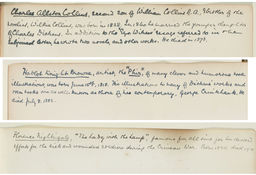 Charles Allston Collins, second son of William Collins R.A. & brother of the
novelist, Wilkie Collins, was born in 1828. In 1860 he married the younger daughter
of Charles Dickens. In addition to the "Eye Witness" essays referred to in this
letter he wrote two novels and other works. He died in 1873.
Hablot Knight Browne, artist, the "Phiz", of many clever and humorous book
illustrations was born June 15th, 1815. His illustrations to many of Dickens's works and
his contemporary, George Cruikshank. He
died July 8, 1882.
Florence Nightingale, "The Lady with the Lamp", famous for all time for her
efforts for the sick and wounded soldiers during the Crimean War. Born 1820